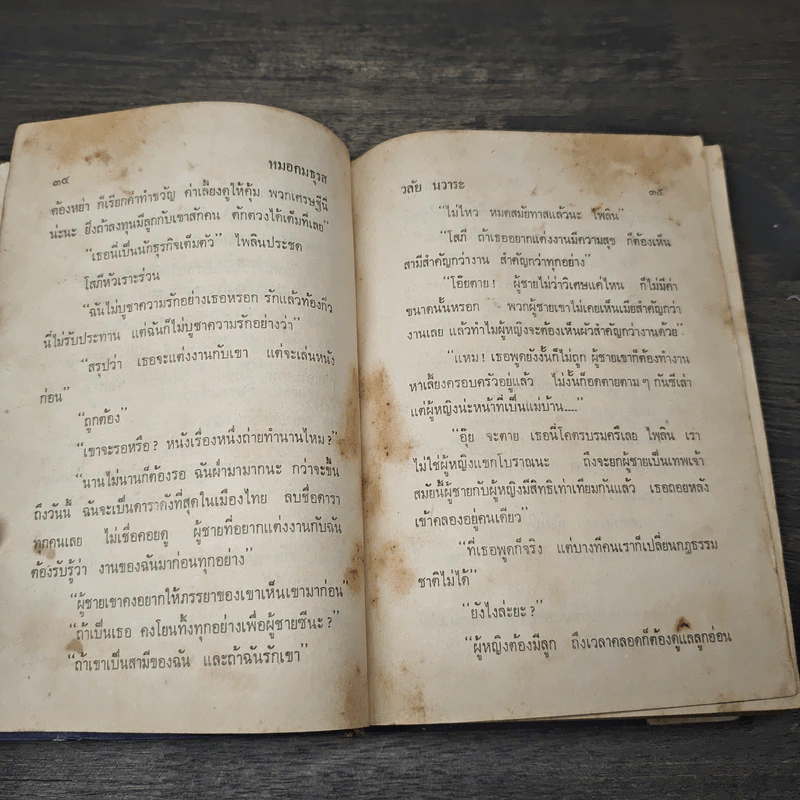 ๓๔
หมอคมธุรส
ต้องหย่า ก็เรียกค่าทำขวัญ ค่าเลี้ยงดูให้คุ้ม พวกเศรษฐีนี่
น่ะนะ ยิ่งถ้าลงทุนมีลูกกับเขาสักคน ตักตวงได้เต็มที่เลย”
“เธอนี่เป็นนักธุรกิจเต็มตัว” ไพลินประชด
โสภีหัวเราะร่วน
“ฉันไม่บูชาความรักอย่างเธอหรอก รักแล้วท้องกิ่ว
นี่ไม่รับประทาน แต่ฉันก็ไม่บูชาความรักอย่างว่า”
“สรุปว่า เธอจะแต่งงานกับเขา แต่จะเล่นหนัง
ก่อน”
“ถูกต้อง”
“เขาจะรอหรือ? หนังเรื่องหนึ่งถ่ายทำนานไหม?”
“นานไม่นานก็ต้องรอ ฉันฝ่ามามากนะ กว่าจะขึ้น
ถึงวันนี้ ฉันจะเป็นดาราดังที่สุดในเมืองไทย ลบชื่อดารา
ทุกคนเลย ไม่เชื่อคอยดู ผู้ชายที่อยากแต่งงานกับฉัน
ต้องรับรู้ว่า งานของฉันมาก่อนทุกอย่าง”
“ผู้ชายเขาคงอยากให้ภรรยาของเขาเห็นเขามาก่อน”
“ถ้าเป็นเธอ คงโยนทิ้งทุกอย่างเพื่อผู้ชายซีนะ?”
“ถ้าเขาเป็นสามีของฉัน และถ้าฉันรักเขา”
วลัย นวาระ
๓๕
“ไม่ไหว หมดสมัยทาสแล้วนะ ไพลิน”
“โสภี ถ้าเธออยากแต่งงานมีความสุข ก็ต้องเห็น
สามีสำคัญกว่างาน สำคัญกว่าทุกอย่าง”
“โอ๊ยตาย! ผู้ชายไม่ว่าวิเศษแค่ไหน ก็ไม่มีค่า
ขนาดนั้นหรอก พวกผู้ชายเขาไม่เคยเห็นเมียสำคัญกว่า
งานเลย แล้วทำไมผู้หญิงจะต้องเห็นผัวสำคัญกว่างานด้วย”
“แหม! เธอพูดยังงั้นก็ไม่ถูก ผู้ชายเขาก็ต้องทำงาน
หาเลี้ยงครอบครัวอยู่แล้ว ไม่งั้นก็อดตายตามๆ กันซีเล่า
แต่ผู้หญิงน่ะหน้าที่เป็นแม่บ้าน....”
“อุ๊ย จะตาย เธอนี่โคตรบรมครึเลย ไพลิน เรา
ไม่ใช่ผู้หญิงแขกโบราณนะ ถึงจะยกผู้ชายเป็นเทพเจ้า
สมัยนี้ผู้ชายกับผู้หญิงมีสิทธิเท่าเทียมกันแล้ว เธอถอยหลัง
เข้าคลองอยู่คนเดียว”
“ที่เธอพูดก็จริง แต่บางทีคนเราก็เปลี่ยนกฎธรรม
ชาติไม่ได้”
“ยังไงล่ะยะ?”
“ผู้หญิงต้องมีลูก ถึงเวลาคลอดก็ต้องดูแลลูกอ่อน